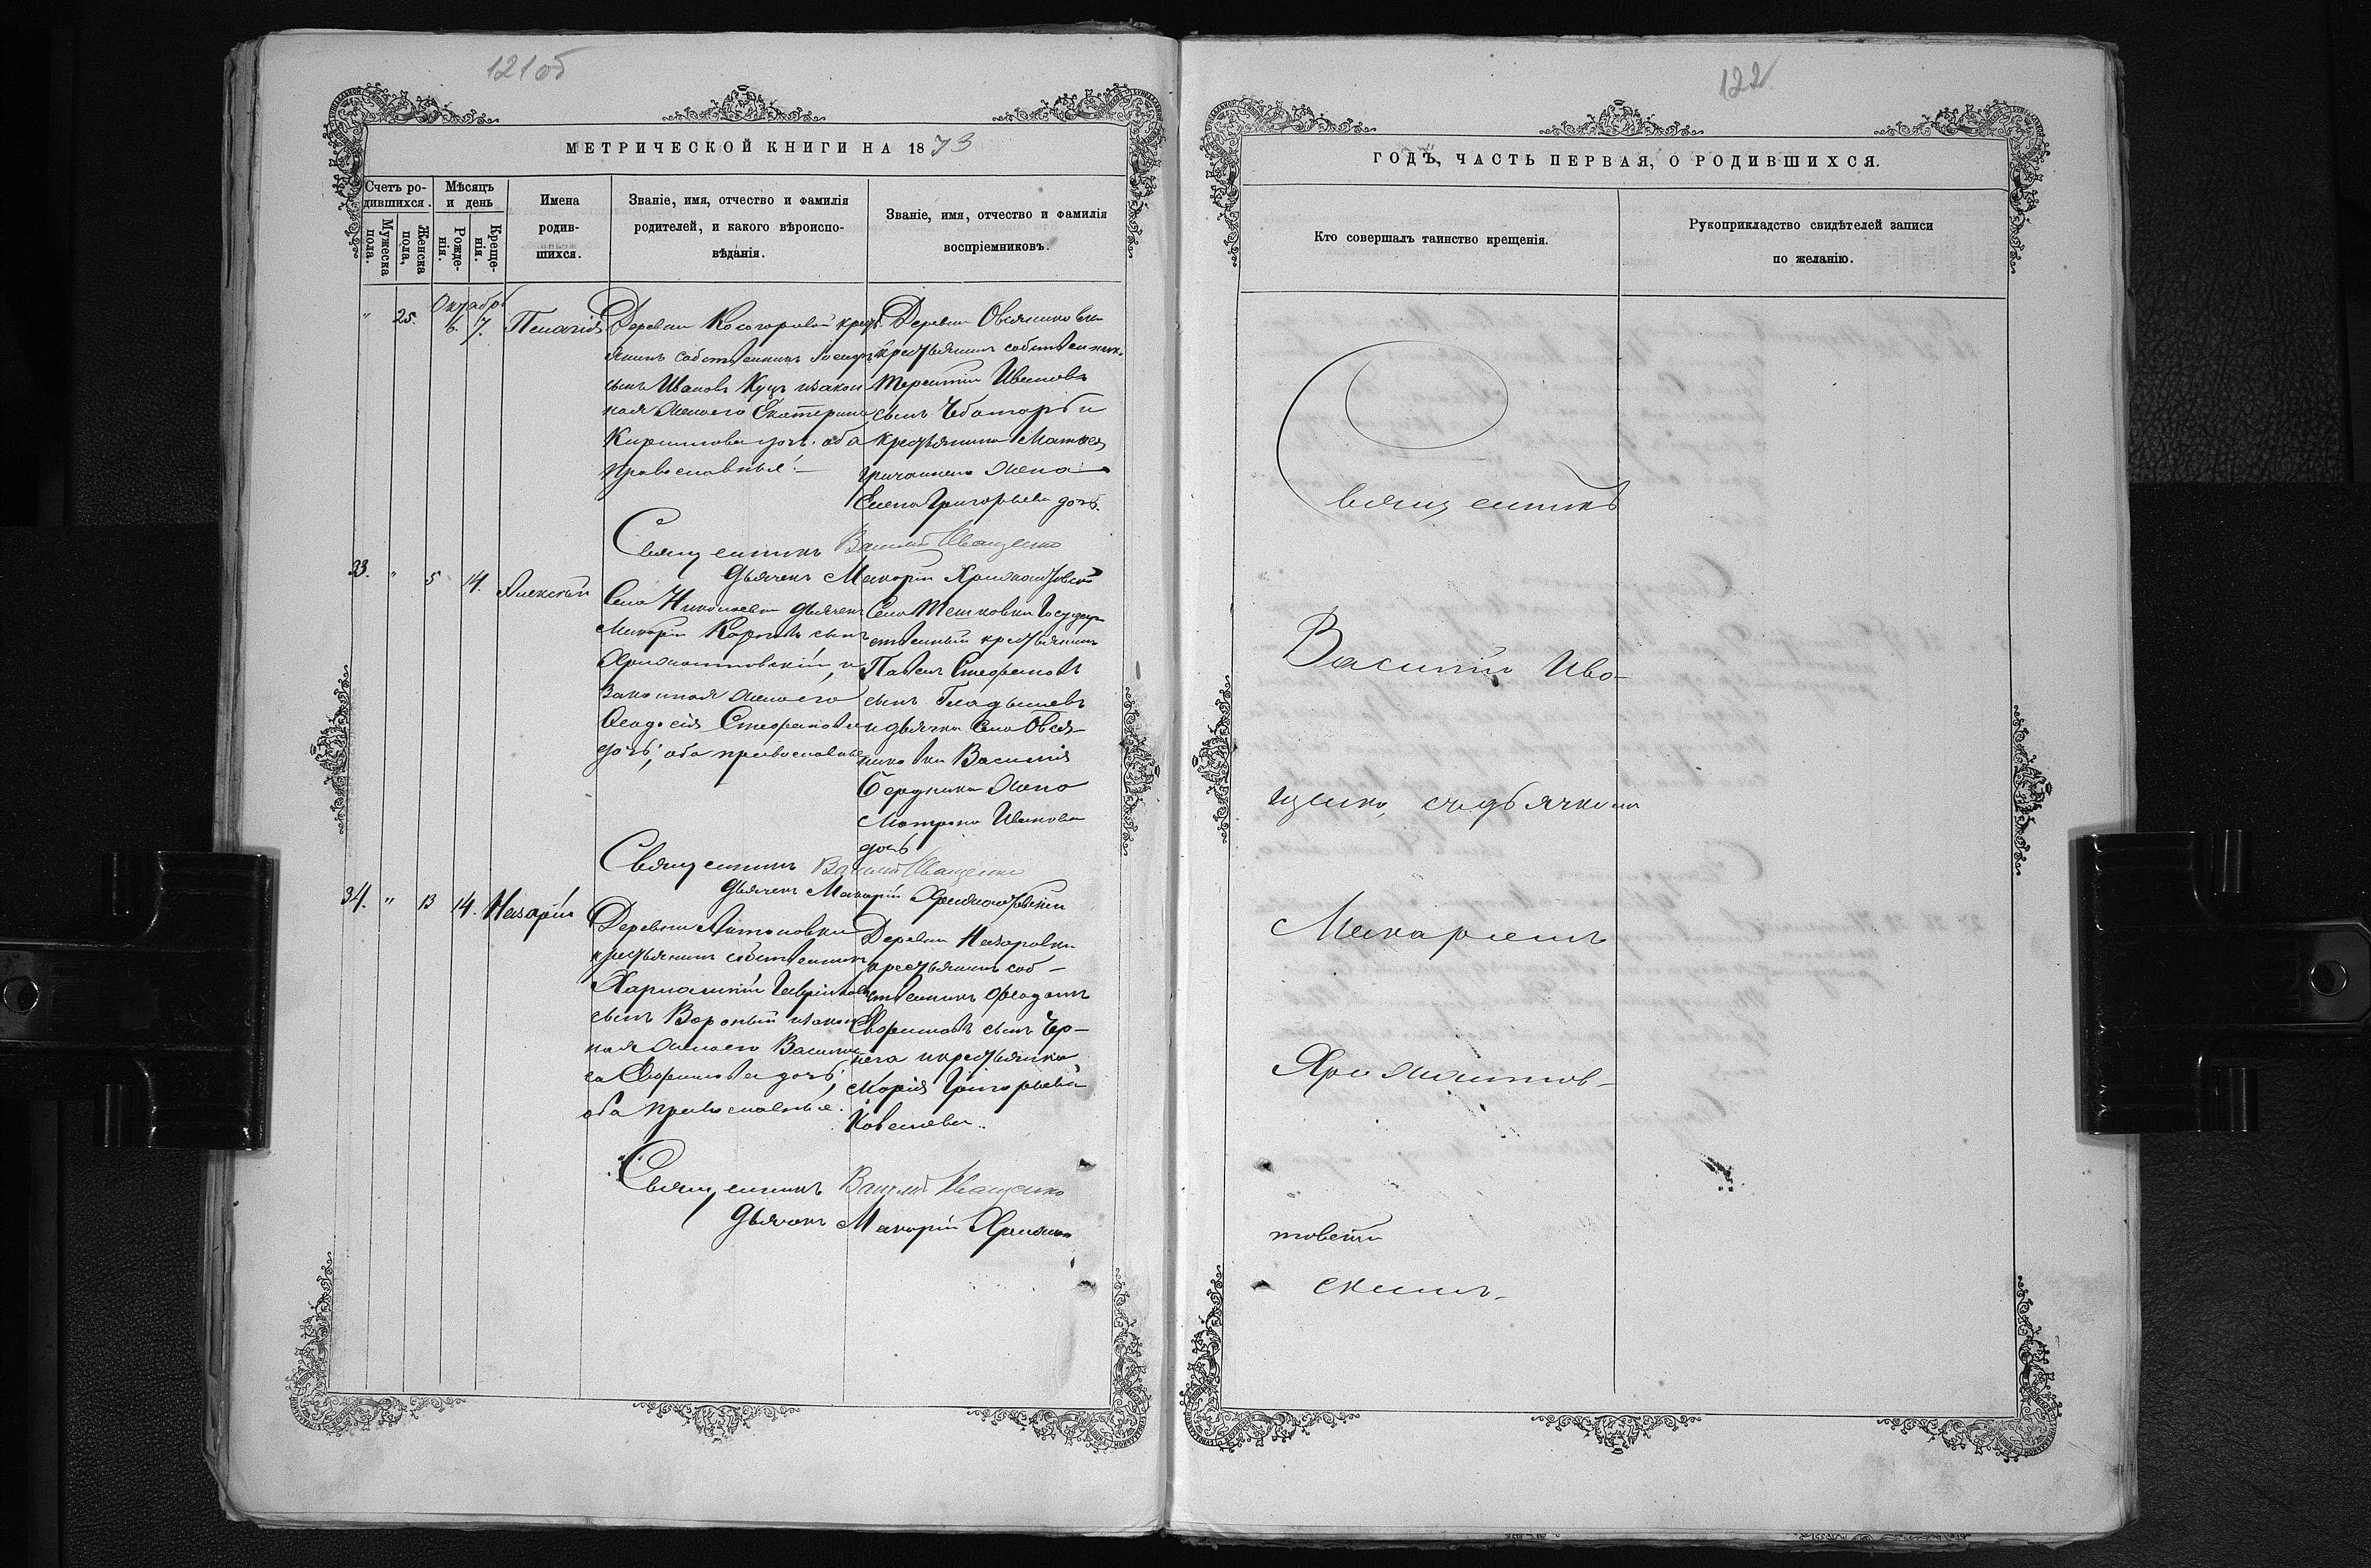 121об
МЕТРИЧЕСКОЙ КНИГИ НА 1873
Счетъ ро-
дившихся.
Мужеска
пола.
Женска
пола,
Мѣсяцъ
и день
Рожде-
нія.
Креще-
нія.
Имена
родив-
шихся.
Званіе, имя, отчество и фамилія
родителей, и какого вѣроиспо-
вѣданія.
Званіе, имя, отчество и фамилія
воспріемниковъ.
Октябрь
" 25. 6. 7. Пелагія
Деревни Косогоровой крест-
янинъ собственникъ
сынъ Ивановъ Куцъ изакон
ная жена его Екатерина
Кириллова дочь. оба
православные.
Деревни Овсяниковки
крестьянинъ собственникъ
Терентій Ивановъ
сынъ Чботарь и
крестьянина Матвея
жена
Елена Григорьева дочь.
Священникъ Василій Иващенко
Дьячекъ Макарій Хрисанѳовскій
33. " 5 14. Алексѣй
Села Николаевки дьячекъ
Макарій Карповъ сынъ
и
Законная жена его
Ѳеодосія Стефанова
дочь; оба православные
Села Тешковки Государ
ственный крестьянинъ
Павелъ Стефановъ
сынъ Гладышевъ
и дьячка Села Овся-
никовки Василія
Бердника жена
Матрона Иванова
дочь
Священникъ Василій Иващенко
Дьячекъ Макарій
34. " 13 14. Назарій
Деревни Антоновки
крестьянинъ собственникъ
Харлампій Гавріиловъ
сынъ Вороный изакон
ная жена его Васили
са Ефимова дочь;
оба православные.
Деревни Назаровки
крестьянинъ соб-
ственникъ
сынъ Чер-
нега и крестьянка
Марія Григорьева
Ковалева.
Священникъ Василій Иващенко
Дьячекъ Макарій
122
ГОДЪ, ЧАСТЬ ПЕРВАЯ, О РОДИВШИХСЯ.
Кто совершалъ таинство крещенія.
Рукоприкладство свидѣтелей записи
по желанію.
Священникъ
Василій Ива-
щенко, съ дьячкомъ
Макаріемъ
скимъ.